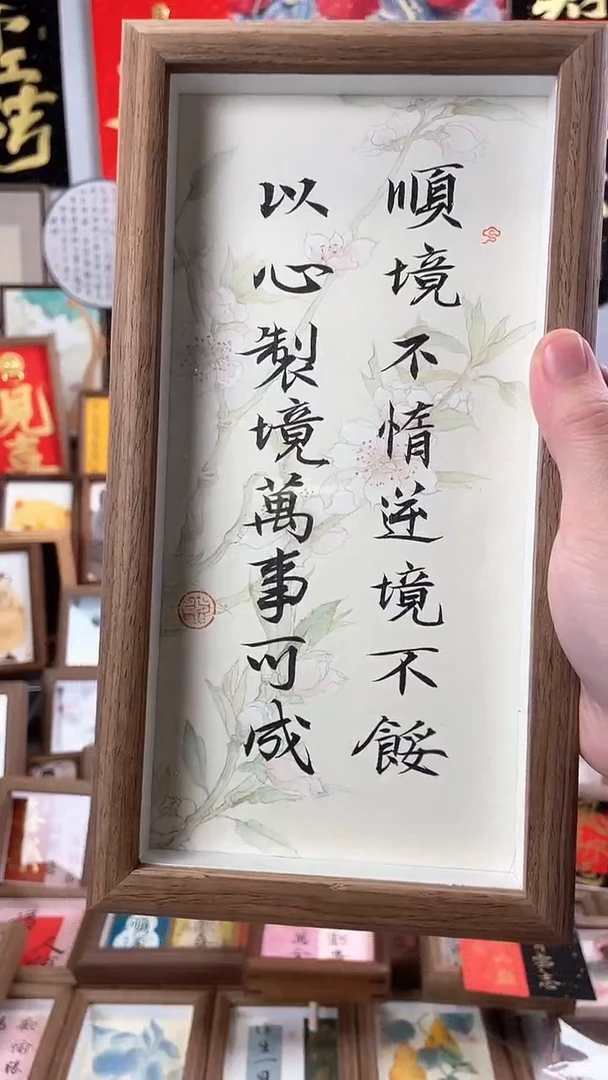 順境不惰逆境不餒
以心製境萬事可成